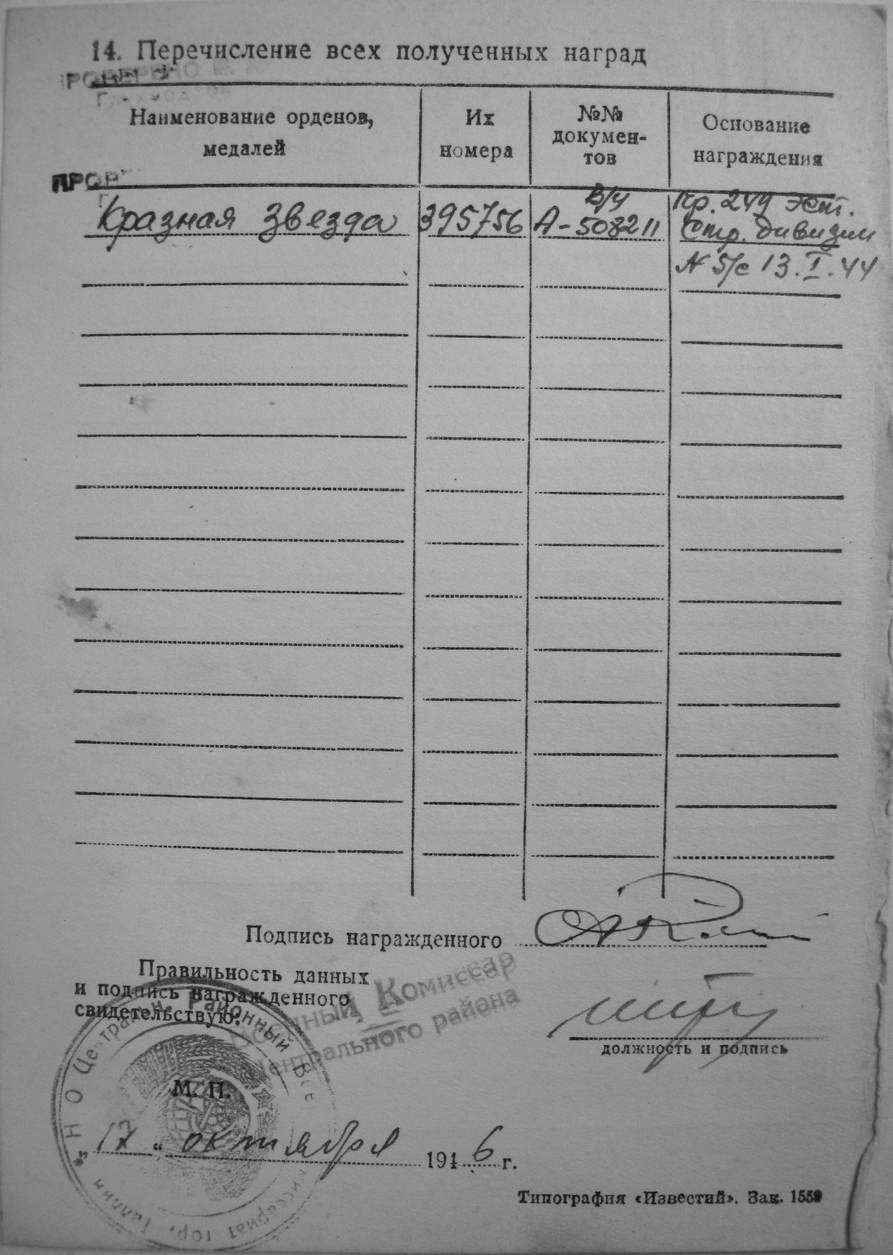 14. Перечисление всех полученных наград
Наименование орденов, медалей
Их номера
№№ докумен-тов
Основание награждения
Кразная звезда
395756
В/ч
А-508211
Пр. 249 Эст.
Стр. дивизии
N 5/с 13.I.44
Подпись награжденного
Правильность данных
и подпись награжденного
свидетельствую.
Военный Комиссар
Центрального района
должность и подпись
М. П.
"17" октября 1946 г.
НО Централ н. Районный Во
иссариат гор. Таллин
Типография «Известий». Зак. 1559